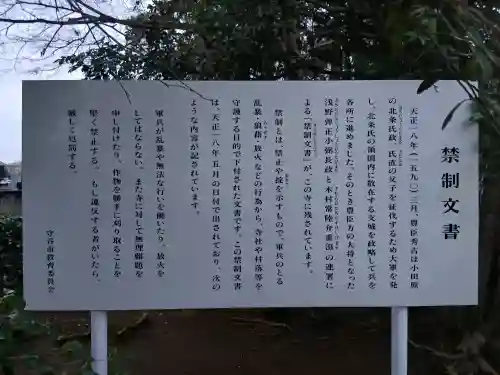 禁制文書
天正一八年(一五九〇)三月、豊臣秀吉は小田原
の北条氏政、氏直の父子を征伐するため大軍を発
し、北条氏の領国内に散在する支城を攻略して兵を
各所に進めました。そのとき豊臣方の大将となった
浅野弾正小弼長政と木村常陸介重茲の連署に
よる「禁制文書」が、この寺に残されています。
禁制とは、禁止や掟を示すもので、軍兵のとる
乱暴・狼藉・放火などの行為から、寺社や村落等を
守護する目的で下付された文書です。この禁制文書
は、天正一八年五月の日付で出されており、次の
ような内容が記されています。
軍兵が乱暴や無法な行いを働いたり、放火を
してはならない。また寺に対して無理難題を
申し付けたり、作物を勝手に刈り取ることを
堅く禁止する。もし違反する者がいたら、
厳しく処罰する。
守谷市教育委員会